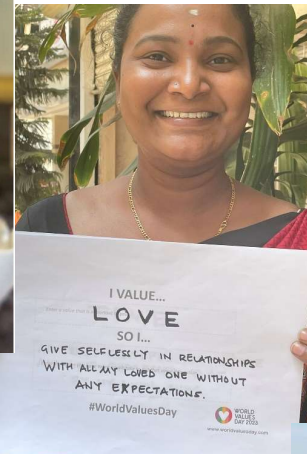 I VALUE...
LOVE
SO I...
GIVE SELFLESSLY IN RELATIONSHIPS
WITH ALL MY LOVED ONE WITHOUT
ANY EXPECTATIONS.
#WorldValuesDay
WORLD
VALUES
DAY 2023
www.worldvaluesday.com